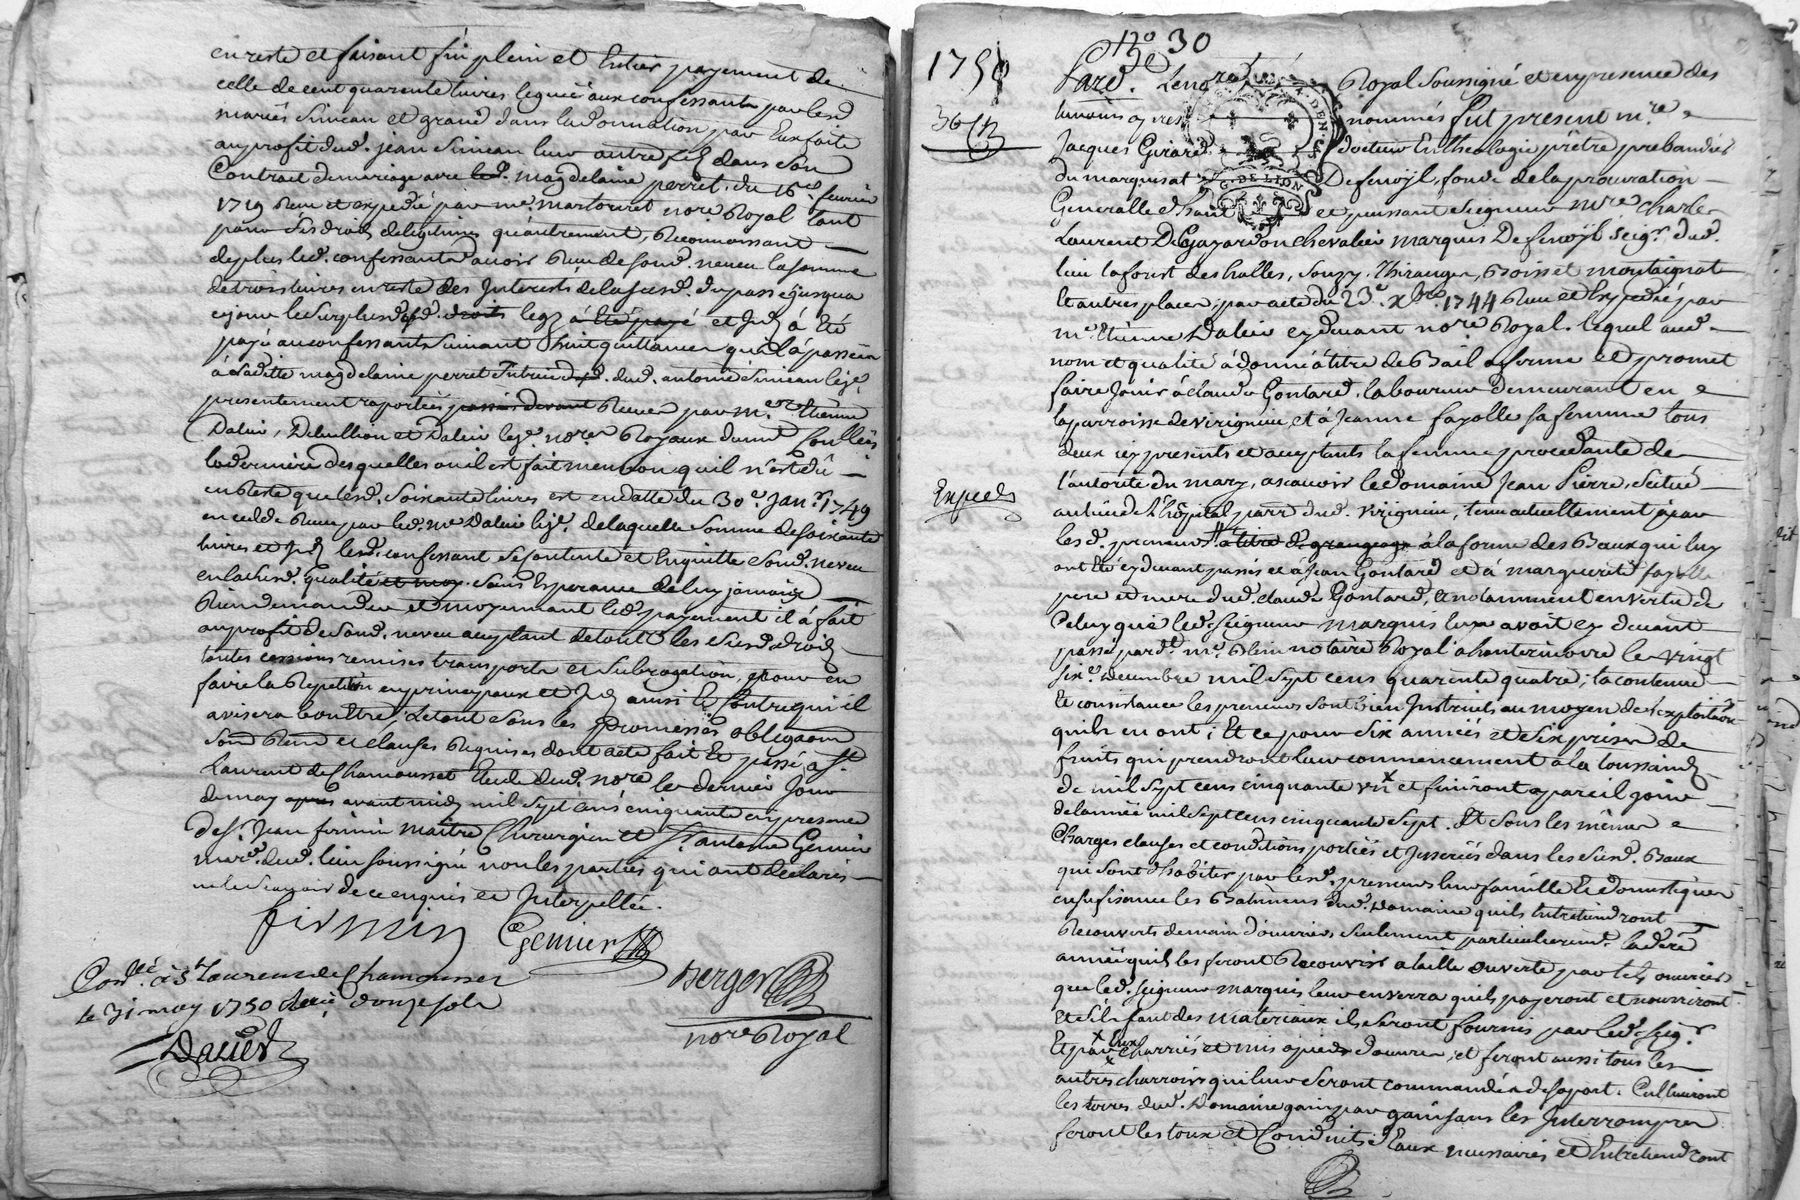 en reste et faisant fin plein et Entier payement de
celle de cent quarente livres leguée aux confessants par lesd
mariés Simean et grand dans la donnation par Eux faite
au profit dud. jean Simean leur autre fils dans son
Contrat de mariage avec lad. magdelaine perret du 16e. fevrier
1719 Reçu et expedié par me. martouret nore Royal tant
pour ses droits delegitimes qu'autrement, Reconnoissant
de plus led. confessant avoir Reçu de sond. neveu la somme
de trois livres en reste des Interests de lasusd. du passé jusqua
ce jour le surplus dud. droits legz à été payé et Jud. à Eté
payé au confessant suivant huit quittances qu'il à passées
à Laditte magdelaine perret dud. antoine Simean lege.
presentement raportées passés devant Reçues par me. Etienne
Dalier, Debullion et Dalier lege. nores Royaux dument Conllées
la derniere des quelles ou il est fait mention qu'il n'est dû
en Reste que lesd. soixante livres est en datte du 30e. Janr. 1749
aussi Reçue par led. me Dalier lege. de laquelle somme de soixante
livres et Jud. led. confessant se contente et En quitte sond. neveu
en lad. qualité et moy sans Esperance de luy jamais
Rien demander et moyennant led. payement il à fait
au profit de sond. neveu acceptant de tout les susd. droits
toutes cessions remises transports et subrogation, pour en
faire la Repetition en principaux et Jud. ainsi Et Contre qui il
avisera bon Etre; Le tout sous les Promesses obligaons
Soum Renon et clauses Requises dont acte fait Et passé à St.
Laurent de Chamousset Etude dud. nore le dernier Jour
de may apres avant midy mil sept cens cinquante en presence
de sr. Jean firmin maître Chirurgien et Sr. antoine Genier
mard. dud. lieu soussigné non les parties qui ont declarés
ne le sçavoir de ce enquis et Interpellée.
firmin Genier
Berger
nore Royal
Conllé à St Laurent de Chamousset
le 31 may 1750 Reçu douze sols
Dalier
No 30
1750
36
Expedé
Pard. Lenore Royal soussigné et en presence des
temoins apres nommés fut present mre.
Jacques Girard docteur En theologie prêtre prebandier
du marquisat De fenoÿl, fondé de la procuration
Generalle d'haut et puissant seigneur mre charles
Laurent De Gayardon Chevalier marquis De fenoÿl seigr. dud.
lieu la forest des halles, souzy, thiranges, Boisset montaignat
Et autres places, par acte du 23e. Xbre. 1744 Reçu et Expedié par
me. Etienne Dalier cydevant nore Royal. lequel aud.
nom et qualité à donné à titre de Bail a ferme et promet
faire Jouir à claude Gontard, laboureur demeurant en
la parroisse de virignieu, et à Jeanne fayolle sa femme tous
deux icy presents et acceptants la femme procedante de
l'autorité du mary, ascavoir le domaine Jean Pierre, scitué
au lieu de L'hôpital parr dud. virignieu, tenu actuellement par
les d. preneurs a titre de grangeage à la forme des Baux qui luy
ont Eté cydevant passés et à Jean Gontard et à marguerite fayolle
pere et mere dud. claude Gontard, et notamment en vertu de
Celuy que led. seigneur marquis leur avoit cy devant
passé par dt. me. Blein notaire Royal a hauterivoire le vingt
sixe. decembre mil sept cens quarente quatre; la contenue
Et consistance les preneurs sont Bien Instruits au moyen de l'exploitaon
qu'ils en ont; Et ce pour Six années et Six prises de
fruits qui prendront leur commencement à la toussaints
de mil sept cens cinquante un et finiront a pareil jour
de l'année mil sept cens cinquante sept. Et sous les mêmes
Charges clauses et conditions portées et Jnserées dans les susd. Baux
qui sont d'habiter par lesd. preneurs leur famille Et domestiques
en sufisance les Batimens dud. Domaine quils Entretiendront
Recouverts de main d'ouvriers seulement particulierem. laderé
année qu'il les feront Recouvrir a taille ouverte par tels ouvriers
que led. seigneur marquis leur enverra qu'ils payeront et nourriront
Et S'il faut des materiaux ils seront fournis par led. seigr.
Et par Eux charriés et mis a pied d'œuvre, et feront aussi tous les
autres charrois qui leur seront commandés de sa part. Cultiveront
les terres dud. Domaine gain par gain sans les Interrompre
feront les toux et Conduits d'Eaux necessaires et Entretiendront